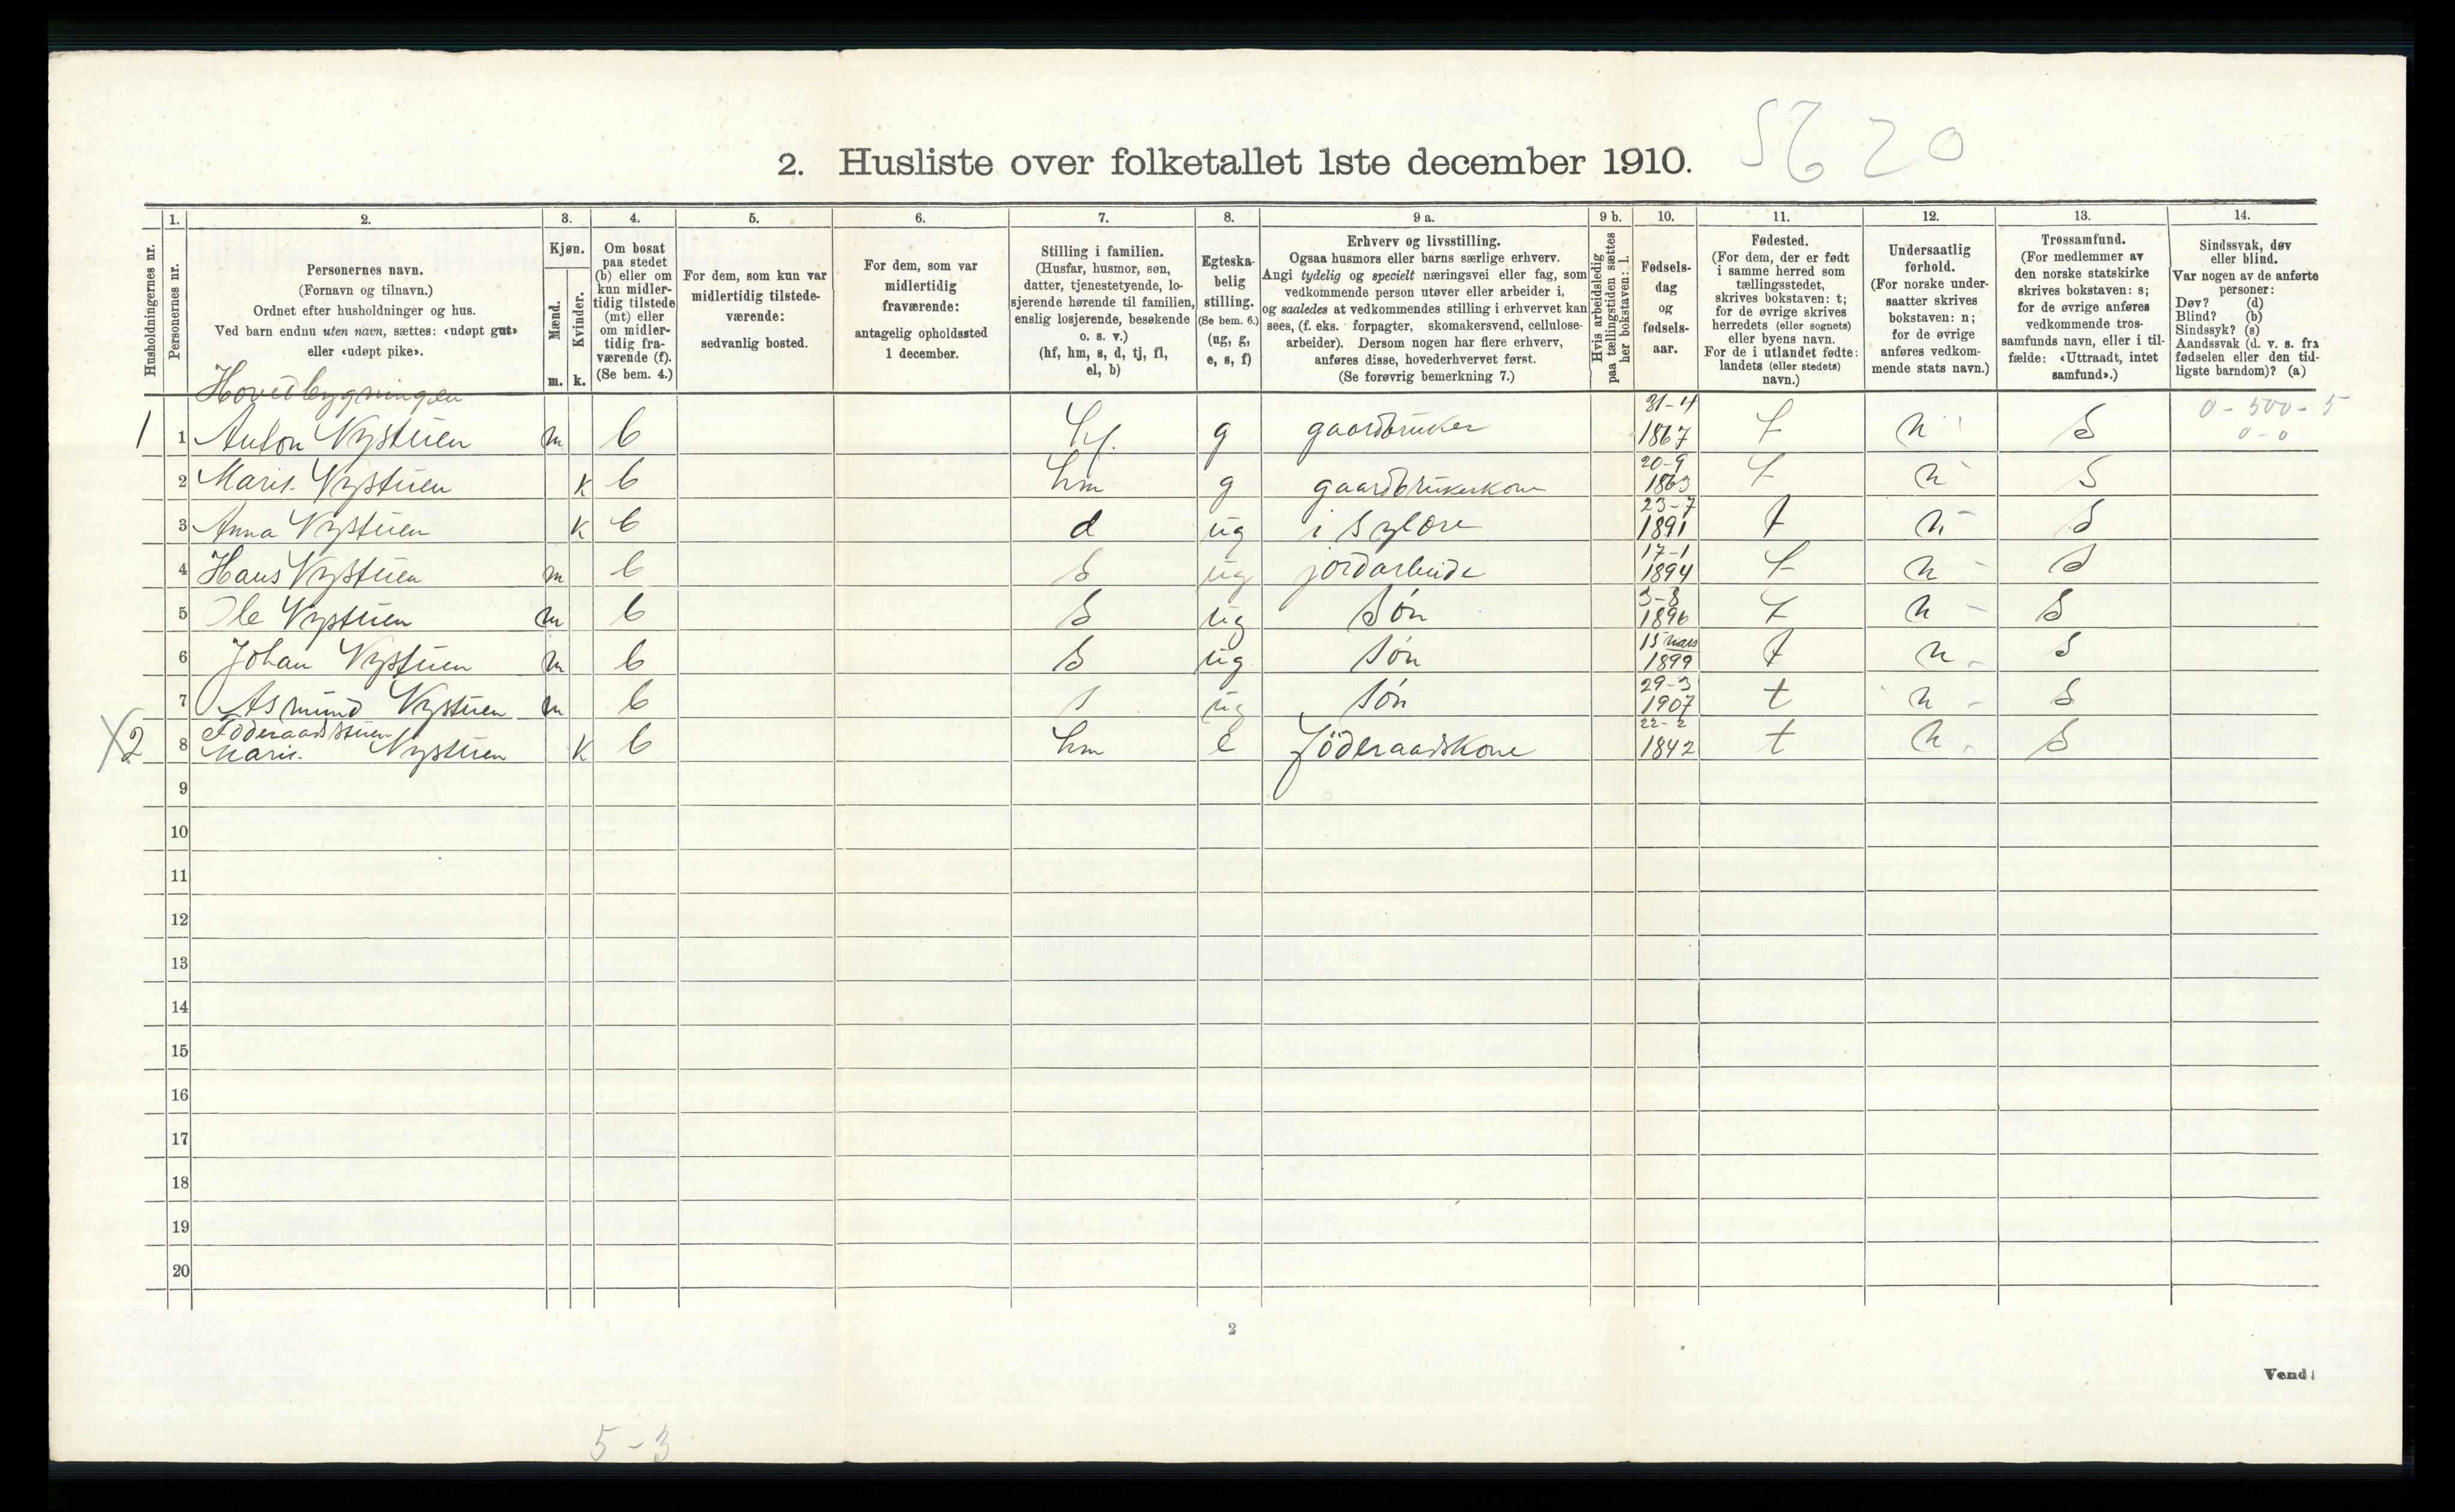 5620
2. Husliste over folketallet 1ste december 1910.
1. 2. 3. 4. 5. 6. 7. 8. 9 a. 9 b. 10. 11. 12. 13. 14.
Husholdningernes nr.
Personernes nr.
Personernes navn.
(Fornavn og tilnavn.)
Ordnet efter husholdninger og hus.
Ved barn endnu uten navn, sættes: «udøpt gut»
eller «udøpt pike».
Kjøn.
Mænd.
Kvinder.
m. k.
Om bosat
paa stedet
(b) eller om
kun midler-
tidig tilstede
(mt) eller
om midler-
tidig fra-
værende (f).
(Se bem. 4.)
For dem, som kun var
midlertidig tilstede-
værende:
sedvanlig bosted.
For dem, som var
midlertidig
fraværende:
antagelig opholdssted
1 december.
Stilling i familien.
(Husfar, husmor, søn,
datter, tjenestetyende, lo-
sjerende hørende til familien,
enslig losjerende, besøkende
o. s. v.)
(hf, hm, s, d, tj, fl,
el, b)
Egteska-
belig
stilling.
(Se bem. 6.)
(ug, g,
e, s, f)
Erhverv og livsstilling.
Ogsaa husmors eller barns særlige erhverv.
Angi tydelig og specielt næringsvei eller fag, som
vedkommende person utøver eller arbeider i,
og saaledes at vedkommendes stilling i erhvervet kan
sees, (f. eks. forpagter, skomakersvend, cellulose-
arbeider). Dersom nogen har flere erhverv,
anføres disse, hovederhvervet først.
(Se forøvrig bemerkning 7.)
Hvis arbeidsledig
paa tællingstiden sættes
her bokstaven: l.
Fødsels-
dag
og
fødsels-
aar.
Fødested.
(For dem, der er født
i samme herred som
tællingsstedet,
skrives bokstaven: t;
for de øvrige skrives
herredets (eller sognets)
eller byens navn.
For de i utlandet fødte:
landets (eller stedets)
navn.)
Undersaatlig
forhold.
(For norske under-
saatter skrives
bokstaven: n;
for de øvrige
anføres vedkom-
mende stats navn.)
Trossamfund.
(For medlemmer av
den norske statskirke
skrives bokstaven: s;
for de øvrige anføres
vedkommende tros-
samfunds navn, eller i til-
fælde: «Uttraadt, intet
samfund».)
Sindssvak, døv
eller blind.
Var nogen av de anførte
personer:
Døv? (d)
Blind? (b)
Sindssyk? (s)
Aandssvak (d. v. s. fra
fødselen eller den tid-
ligste barndom)? (a)
Hovedbygningen
31-4 0-500-5
1 1 Anton Nystuen m b hf. g gaardbruker 1867 t n s 0-0
20-9
2 Marit Nystuen k b hm g gaardbrukerkone 1863 t n s
23-7
3 Anna Nystuen k b d ug i sylære 1891 t n s
17-1
4 Hans Nystuen m b s ug jordarbeide 1894 t n s
3-8
5 Ole Nystuen m b s ug søn 1896 t n s
15 mars
6 Johan Nystuen m b s ug søn 1899 t n s
29-3
7 Asmund Nystuen m b s ug søn 1907 t n s
Föderaadsstuen 22-2
X 2 8 Marit Nystuen k b hm e föderaadskone 1842 t n s
9
10
11
12
13
14
15
16
17
18
19
20
2
Vend!
5-3